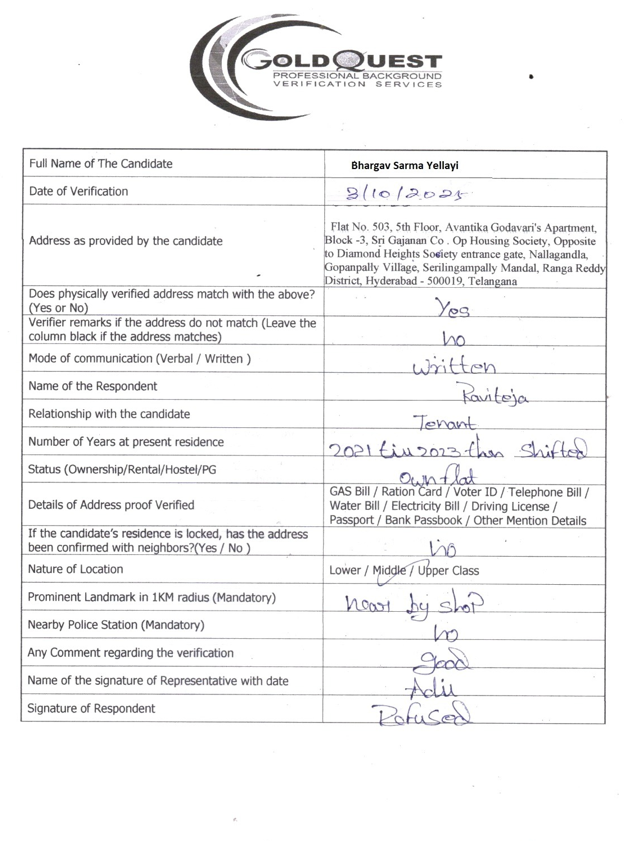 GOLDQUEST
PROFESSIONAL BACKGROUND
VERIFICATION SERVICES
Full Name of The Candidate
Bhargav Sarma Yellayi
Date of Verification
3/10/2025
Address as provided by the candidate
Flat No. 503, 5th Floor, Avantika Godavari's Apartment,
Block -3, Sri Gajanan Co . Op Housing Society, Opposite
to Diamond Heights Society entrance gate, Nallagandla,
Gopanpally Village, Serilingampally Mandal, Ranga Reddy
District, Hyderabad - 500019, Telangana
Does physically verified address match with the above?
(Yes or No)
Yes
Verifier remarks if the address do not match (Leave the
column black if the address matches)
no
Mode of communication (Verbal / Written )
written
Name of the Respondent
Raviteja
Relationship with the candidate
Tenant
Number of Years at present residence
2021 till 2023 then Shifted
Status (Ownership/Rental/Hostel/PG
own flat
Details of Address proof Verified
GAS Bill / Ration Card / Voter ID / Telephone Bill /
Water Bill / Electricity Bill / Driving License /
Passport / Bank Passbook / Other Mention Details
If the candidate's residence is locked, has the address
been confirmed with neighbors?(Yes / No )
no
Nature of Location
Lower / Middle / Upper Class
Prominent Landmark in 1KM radius (Mandatory)
near by shop
Nearby Police Station (Mandatory)
no
Any Comment regarding the verification
good
Name of the signature of Representative with date
Adil
Signature of Respondent
Refused